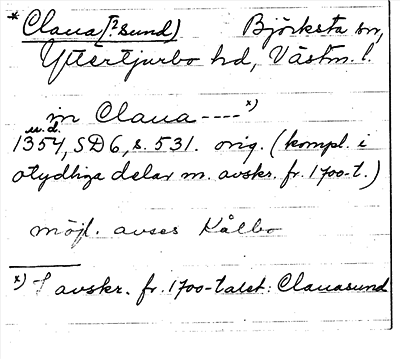 * Claua [?sund) Björksta sn,
Yttertjurbo hd, Västm. l.
in Claua ----x)
u.d.
1354, SD6, s. 531. orig. (kompl. i
otydliga delar m. avskr. fr. 1700-t.)
möjl. avses Kålbo
x) I avskr. fr. 1700-talet: Clauasund